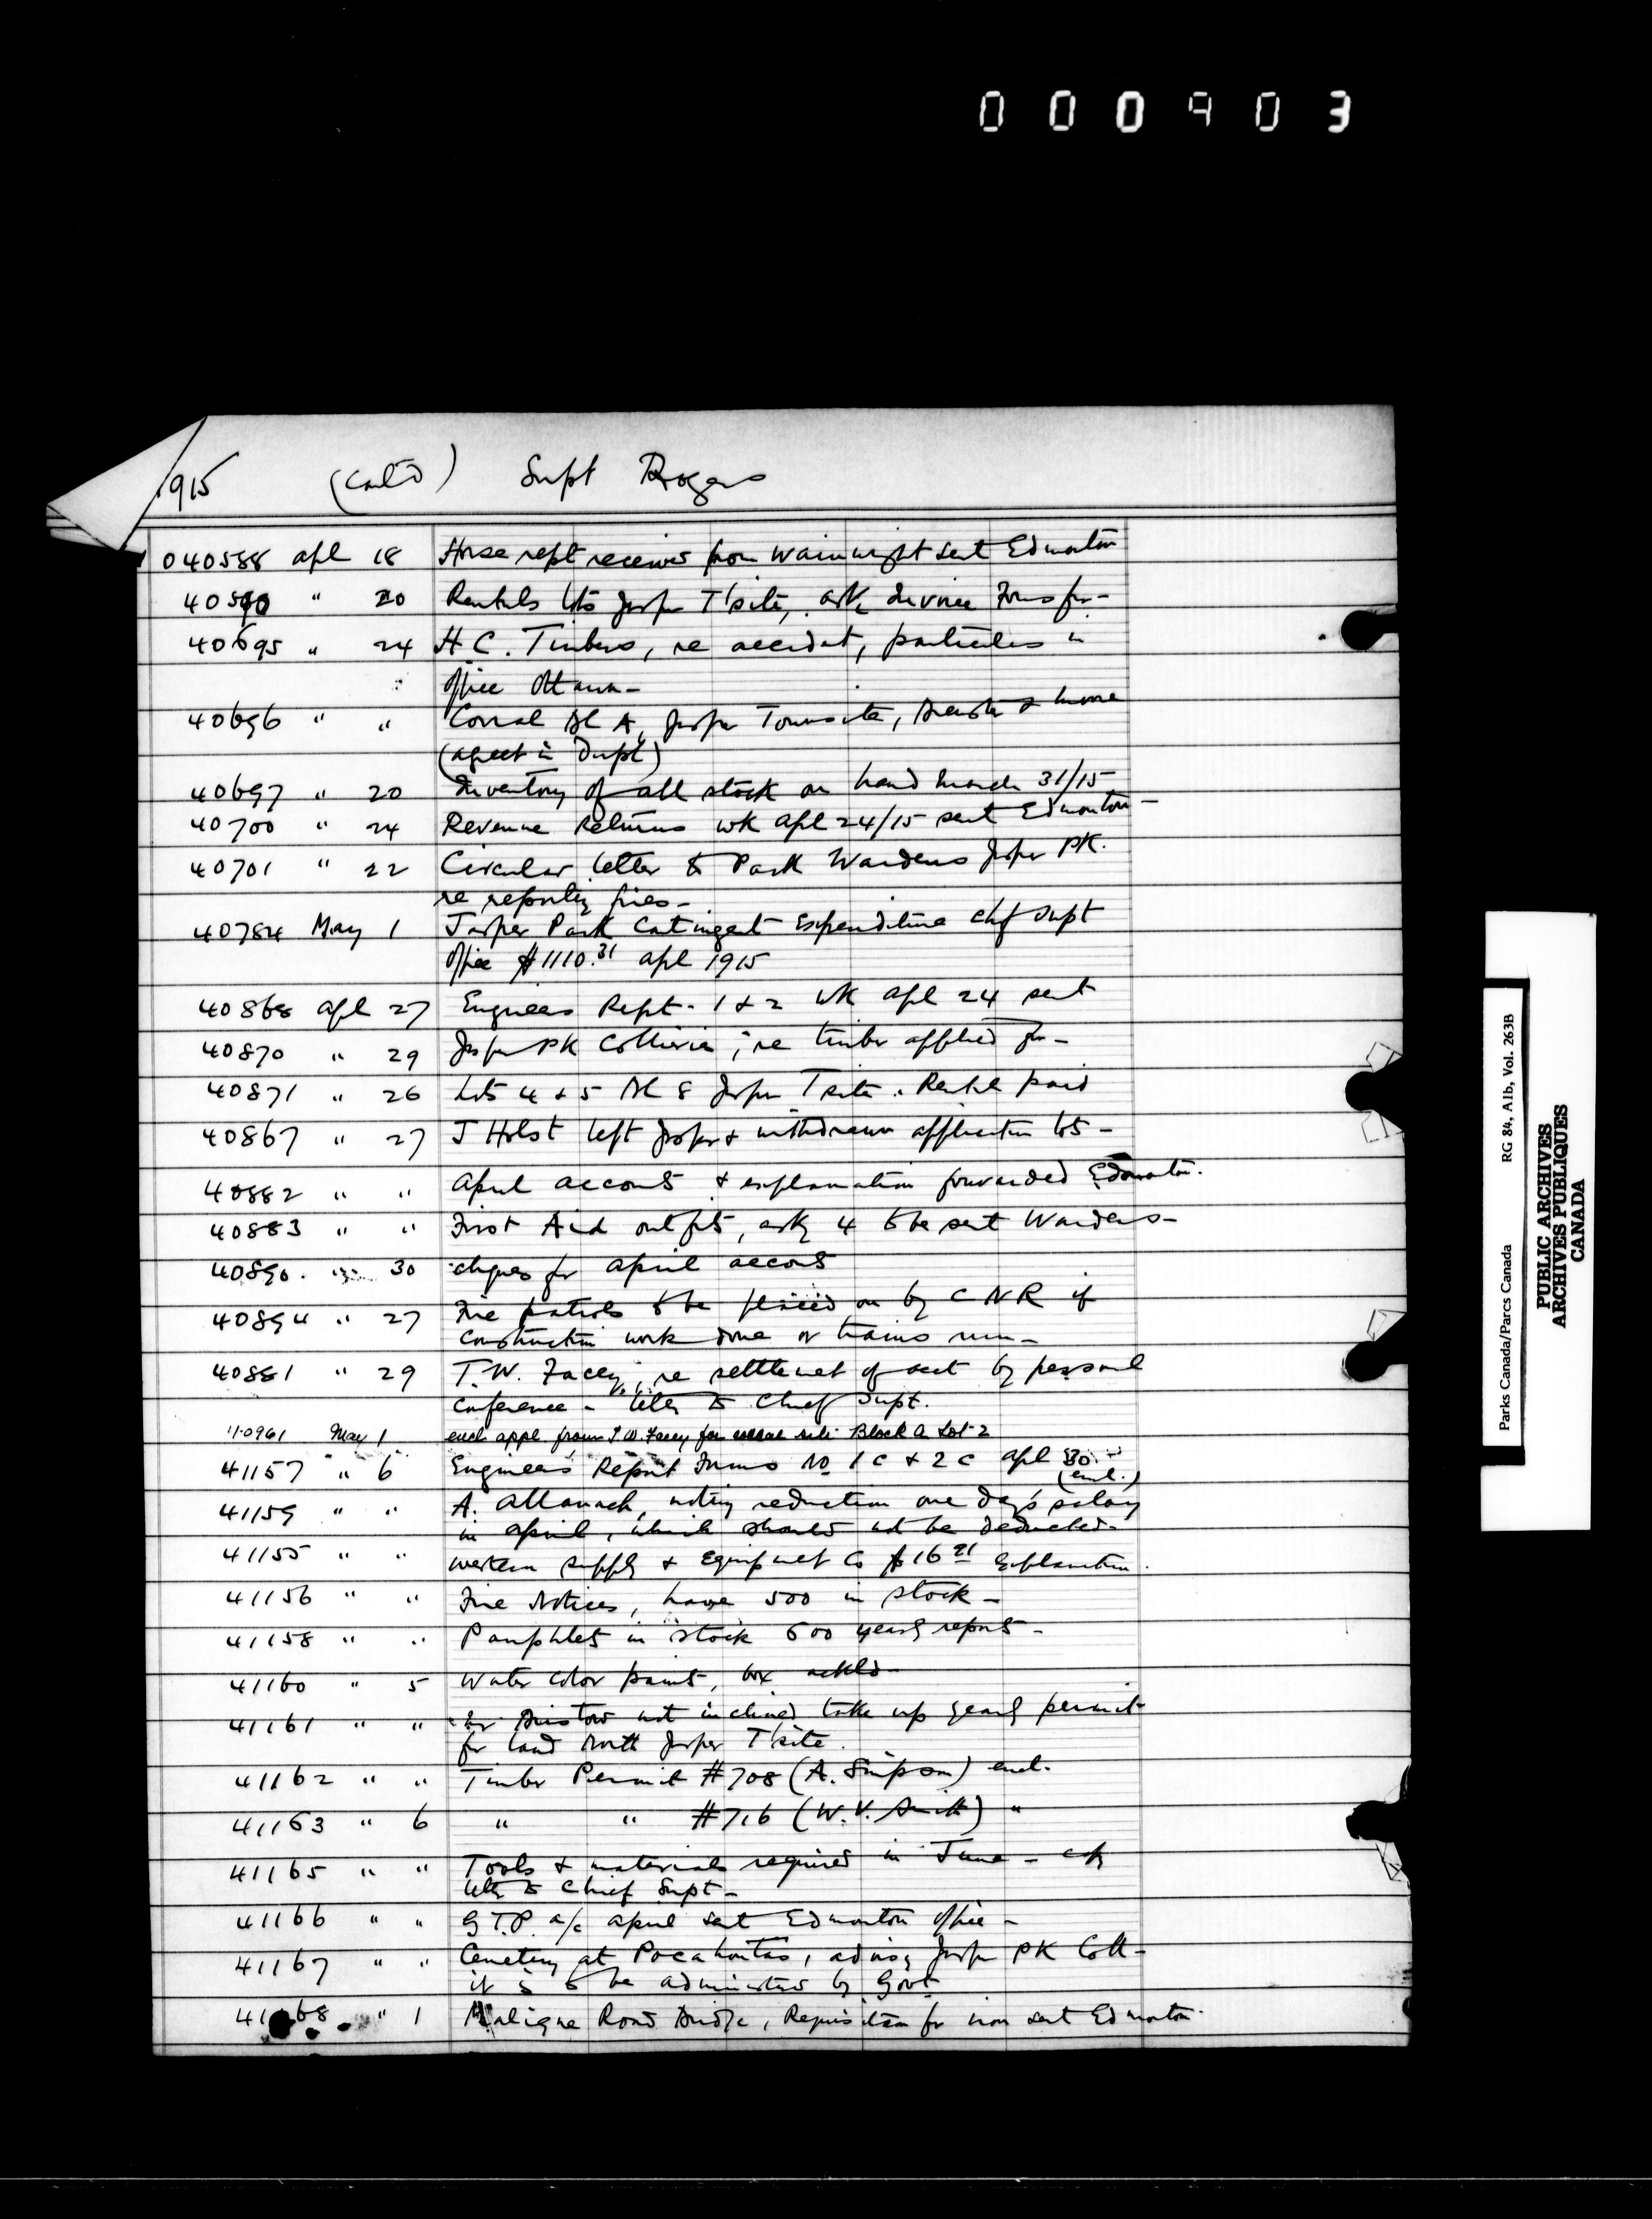 000903
1915 (Cont'd) Supt Rogers
040588 Apl 18 Horse rept received from Wainwright sent Edmonton
40590 " 20 Rentals lots Jasper T'site, ask
40695 " 24 H C. Timbers, re accident, particulars in
office Ottawa -
40696 " " Corral Bl A, Jasper Townsite,
(agreet in Dupl)
40697 " 20 Inventory of all stock on hand March 31/15
40700 " 24 Revenue Returns wk Apl 24/15 sent Edmonton -
40701 " 22 Circular letter to Park Wardens Jasper PK.
re reporting fires -
40784 May 1 Jasper Park Contingent Expenditure chf Supt
office $1110.31 Apl 1915
40868 Apl 27 Engineers Rept. 1 & 2 wk Apl 24 sent
40870 " 29 Jasper PK Collieries; re timber applied for -
40871 " 26 Lots 4 & 5 Bl 8 Jasper Tsite. Rental paid
40867 " 27 J Holst left Jasper & withdrawn application lots -
40882 " " April accounts & explanation forwarded Edmonton.
40883 " " First Aid outfits, ask 4 to be sent Wardens -
40890. " 30 cheques for April accounts
40894 " 27 Fire patrols to be placed on by C N R if
construction work done or trains run -
40881 " 29 T. W. Facey, re settlement of acct by personal
conference - letter to Chief Supt.
40961 May 1 encl appl. from T.W. Facey for corral site Block A Lot 2
41157 " 6 Engineers Report Forms No 1 C & 2 C Apl 30.
(encl.)
41159 " " A. Allanach, noting reduction one day's salary
in April, which should not be deducted -
41155 " " Western Supply & Equipment Co $16 21 Explanation.
41156 " " Fire Notices, have 500 in stock -
41158 " " Pamphlets in stock 600 yearly reports -
41160 " 5 Water color paints, box ackld -
41161 " " Bristow not inclined take up yearly permit
for land North Jasper T'site.
41162 " " Timber Permit #708 (A. Simpson) encl.
41163 " 6 " " #716 (W. V. Smith) "
41165 " " Tools & materials required in June - ask
letter to Chief Supt -
41166 " " G.T.P. a/c April sent Edmonton office -
41167 " " Cemetery at Pocahontas, advise Jasper PK Coll -
it is to be administered by Govt
41168 " 1 Maligne Road Bridge, Requisition for iron sent Edmonton.
Parks Canada/Parcs Canada RG 84, Alb, Vol. 263B
PUBLIC ARCHIVES
ARCHIVES PUBLIQUES
CANADA